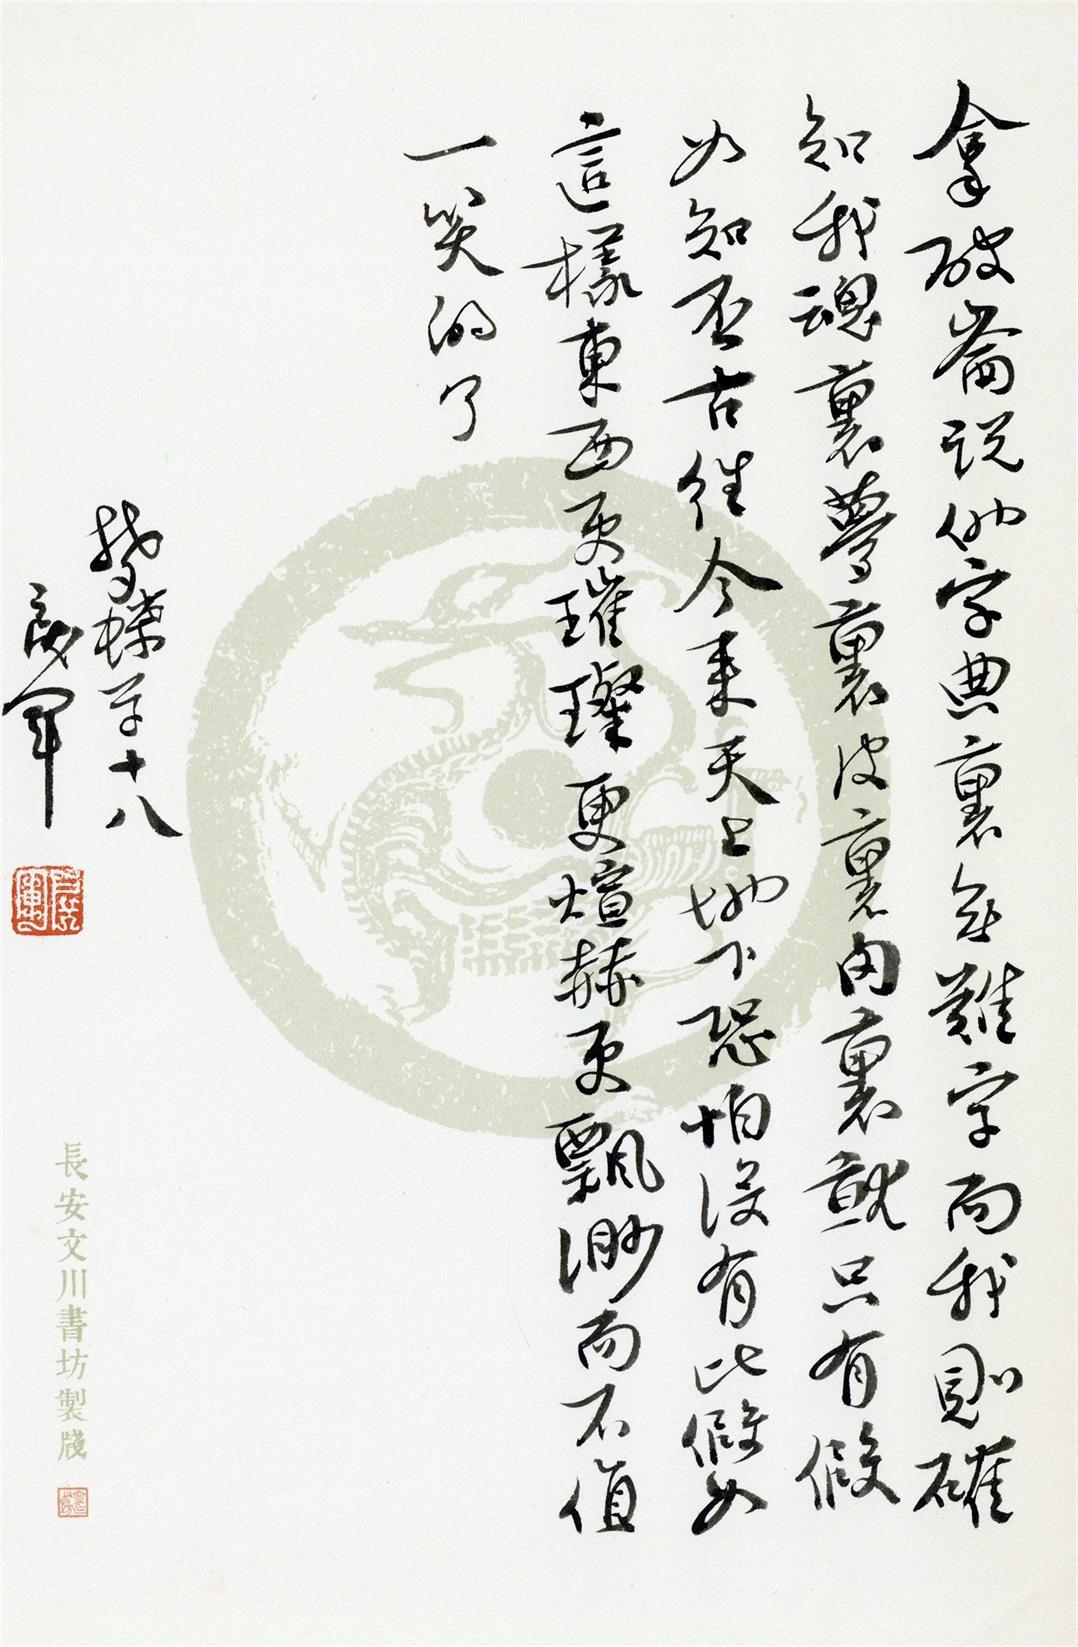 拿破崙説他字典裏無難字而我則確
知我魂裏夢裏皮裏肉裏就只有假
如知否古往今來天上地下恐怕没有比假如
這樣東西更璀璨更煊赫更飄渺而不值
一笑的了
夢蝶草十八
良軍
長安文川書坊製牋